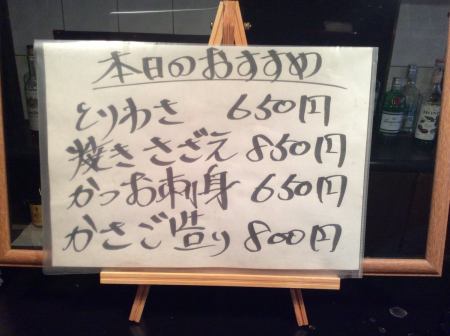 本日のおすすめ
とりわさ 650円
焼きさざえ 850円
かつお刺身 650円
かさご造り 800円